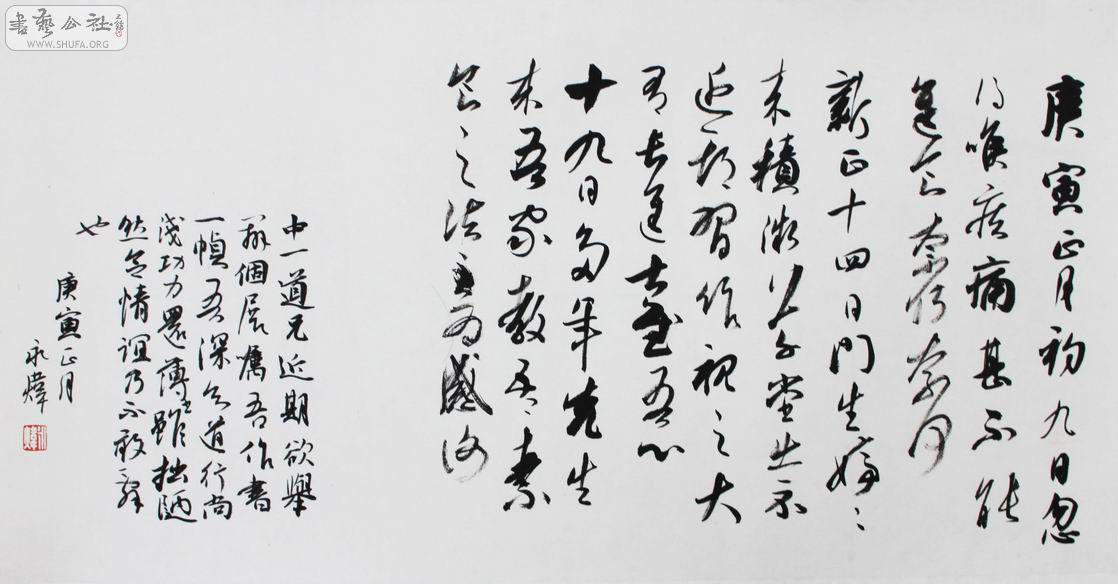 庚寅正月初九日忽
得喉疾痛甚不能
進食奈何奈何
新正十四日門生婷々
來積微草堂出示
近期習作視之大
有長進甚慰吾心
十九日多年先生
來吾家教吾素
食之法
中一道兄近期欲舉
辦個展囑吾作書
一幀吾深知道行尚
淺功力還薄雖拙陋
然念情誼乃不敢辭
也
庚寅正月
永煒
書藝公社
WWW.SHUFA.ORG